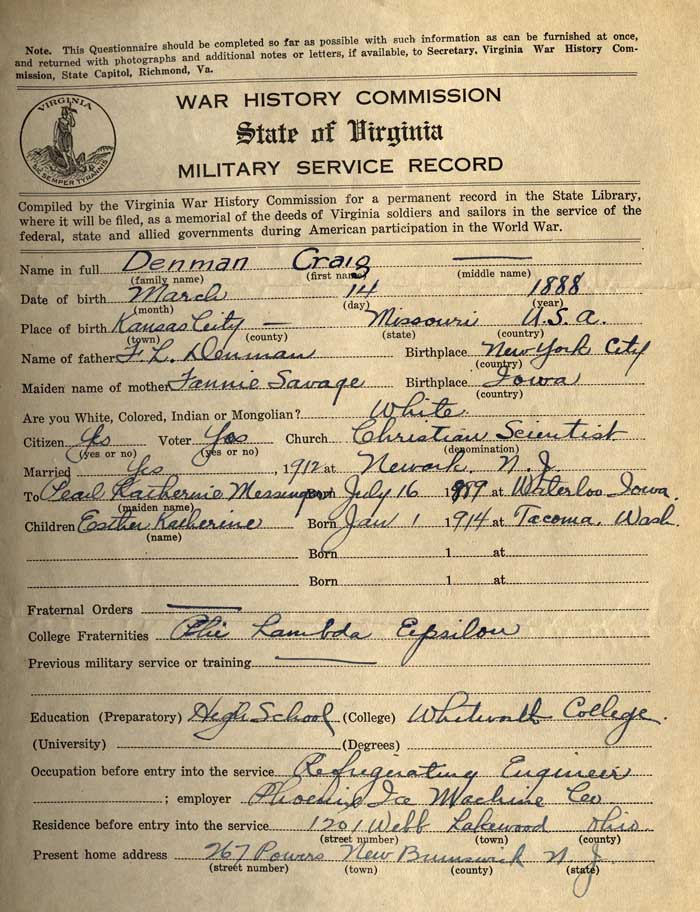 Note. This Questionnaire should be completed so far as possible with such information as can be furnished at once,
and returned with photographs and additional notes or letters, if available, to Secretary, Virginia War History Com-
mission, State Capitol, Richmond, Va.
VIRGINIA
SIC SEMPER TYRANNIS
WAR HISTORY COMMISSION
State of Virginia
MILITARY SERVICE RECORD
Compiled by the Virginia War History Commission for a permanent record in the State Library,
where it will be filed, as a memorial of the deeds of Virginia soldiers and sailors in the service of the
federal, state and allied governments during American participation in the World War.
Name in full Denman Craig
(family name) (first name) (middle name)
Date of birth March 14 1888
(month) (day) (year)
Place of birth Kansas City — Missouri U.S.A.
(town) (county) (state) (country)
Name of father F. L. Denman Birthplace New York City
(country)
Maiden name of mother Fannie Savage Birthplace Iowa
(country)
Are you White, Colored, Indian or Mongolian? White.
Citizen Yes Voter Yes Church Christian Scientist
(yes or no) (yes or no) (denomination)
Married Yes, 1912 at Newark. N. J.
To Pearl Katherine Messinger Born July 16 1889 at Waterloo Iowa.
(maiden name)
Children Esther Katherine Born Jan 1 1914 at Tacoma. Wash.
(name)
Born 1 at
Born 1 at
Fraternal Orders
College Fraternities Phi Lambda Epsilon
Previous military service or training
Education (Preparatory) High School (College) Whitworth College.
(University) (Degrees)
Occupation before entry into the service Refrigerating Engineer
; employer Phoenix Ice Machine Co.
Residence before entry into the service 1201 Webb Lakewood Ohio.
(street number) (town) (county)
Present home address 267 Powers New Brunswick N. J.
(street number) (town) (county) (state)